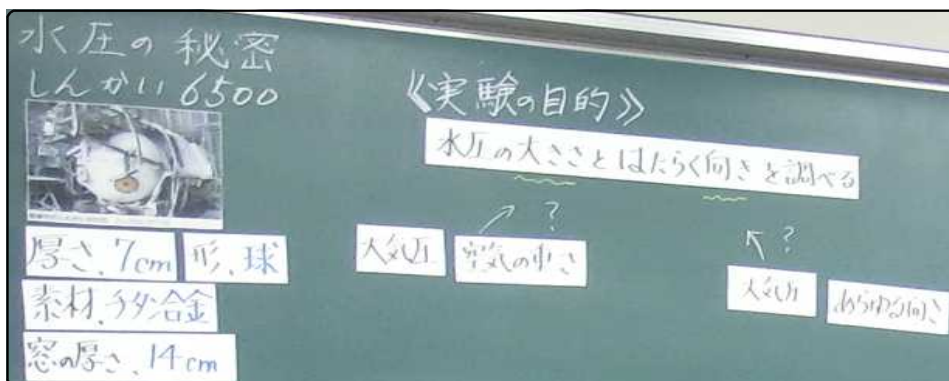 水圧の秘密
しんかい6500
厚さ、7cm
形、球
素材、チタン合金
窓の厚さ、14cm
《実験の目的》
水圧の大きさとはたらく向きを調べる
?
大気圧
空気の重さ
?
大気圧
あらゆる向き